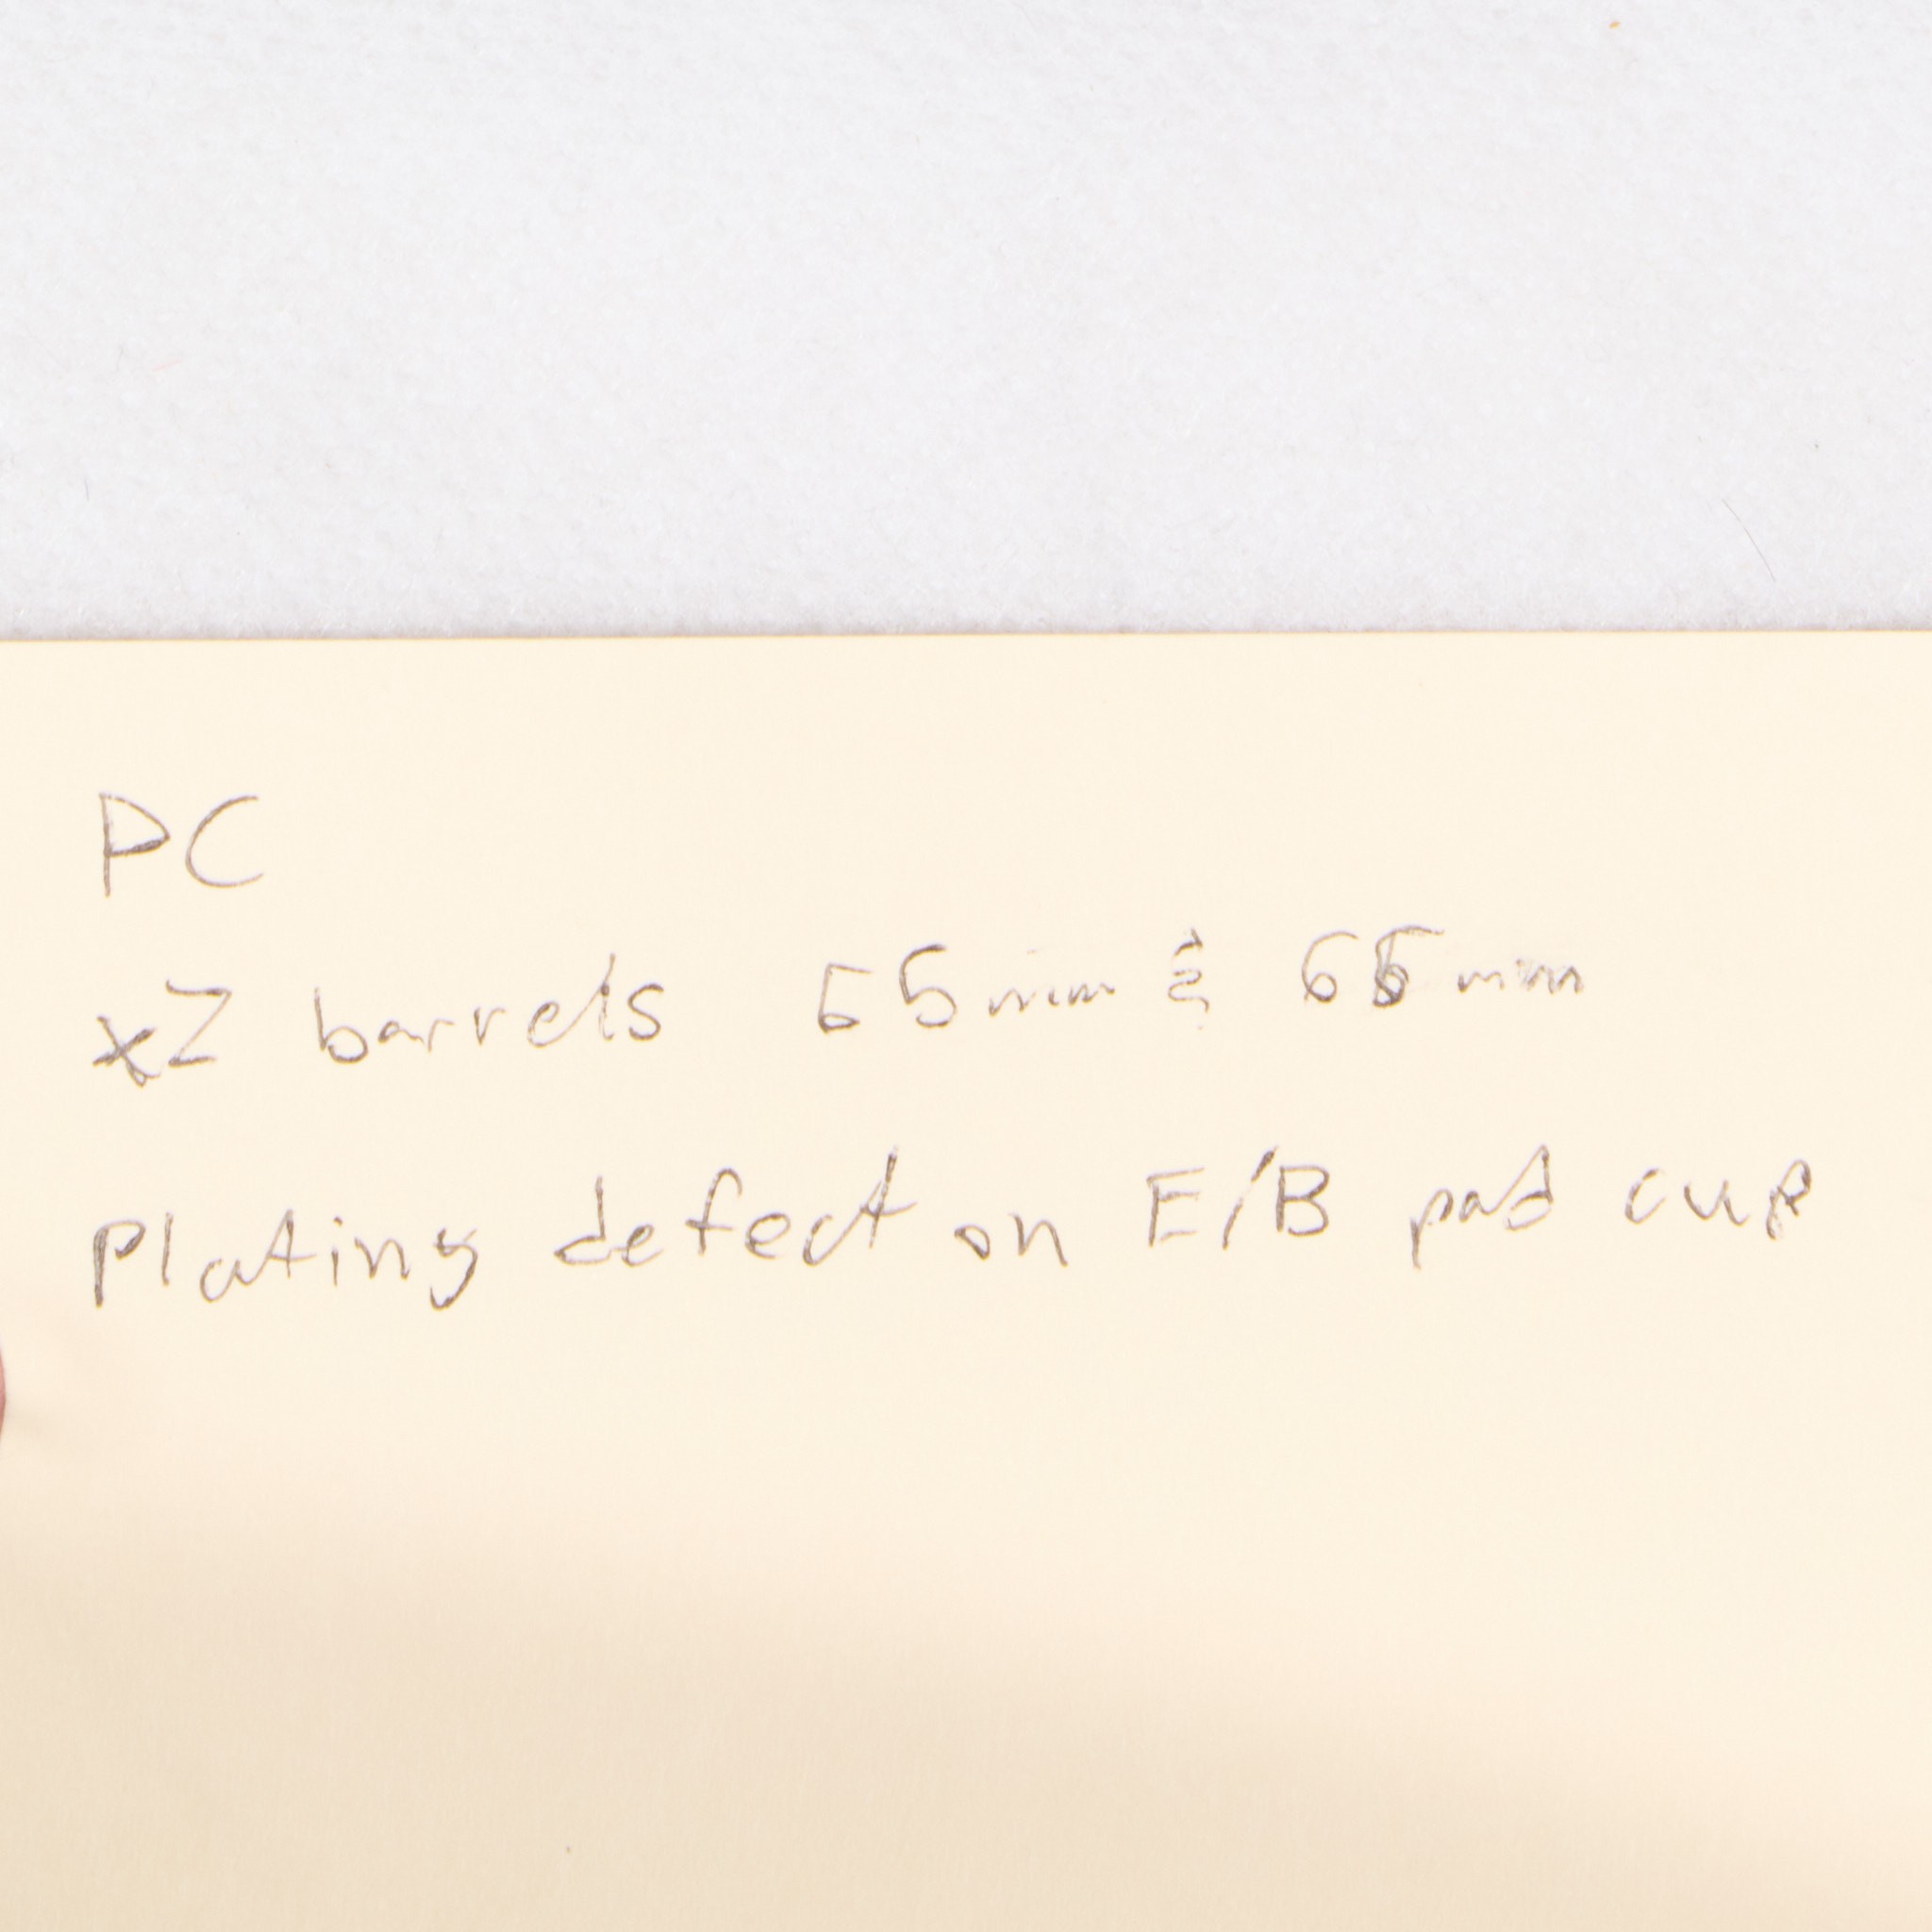 PC
x2 barrels 65mm & 66mm
Plating defect on E/B pad cup